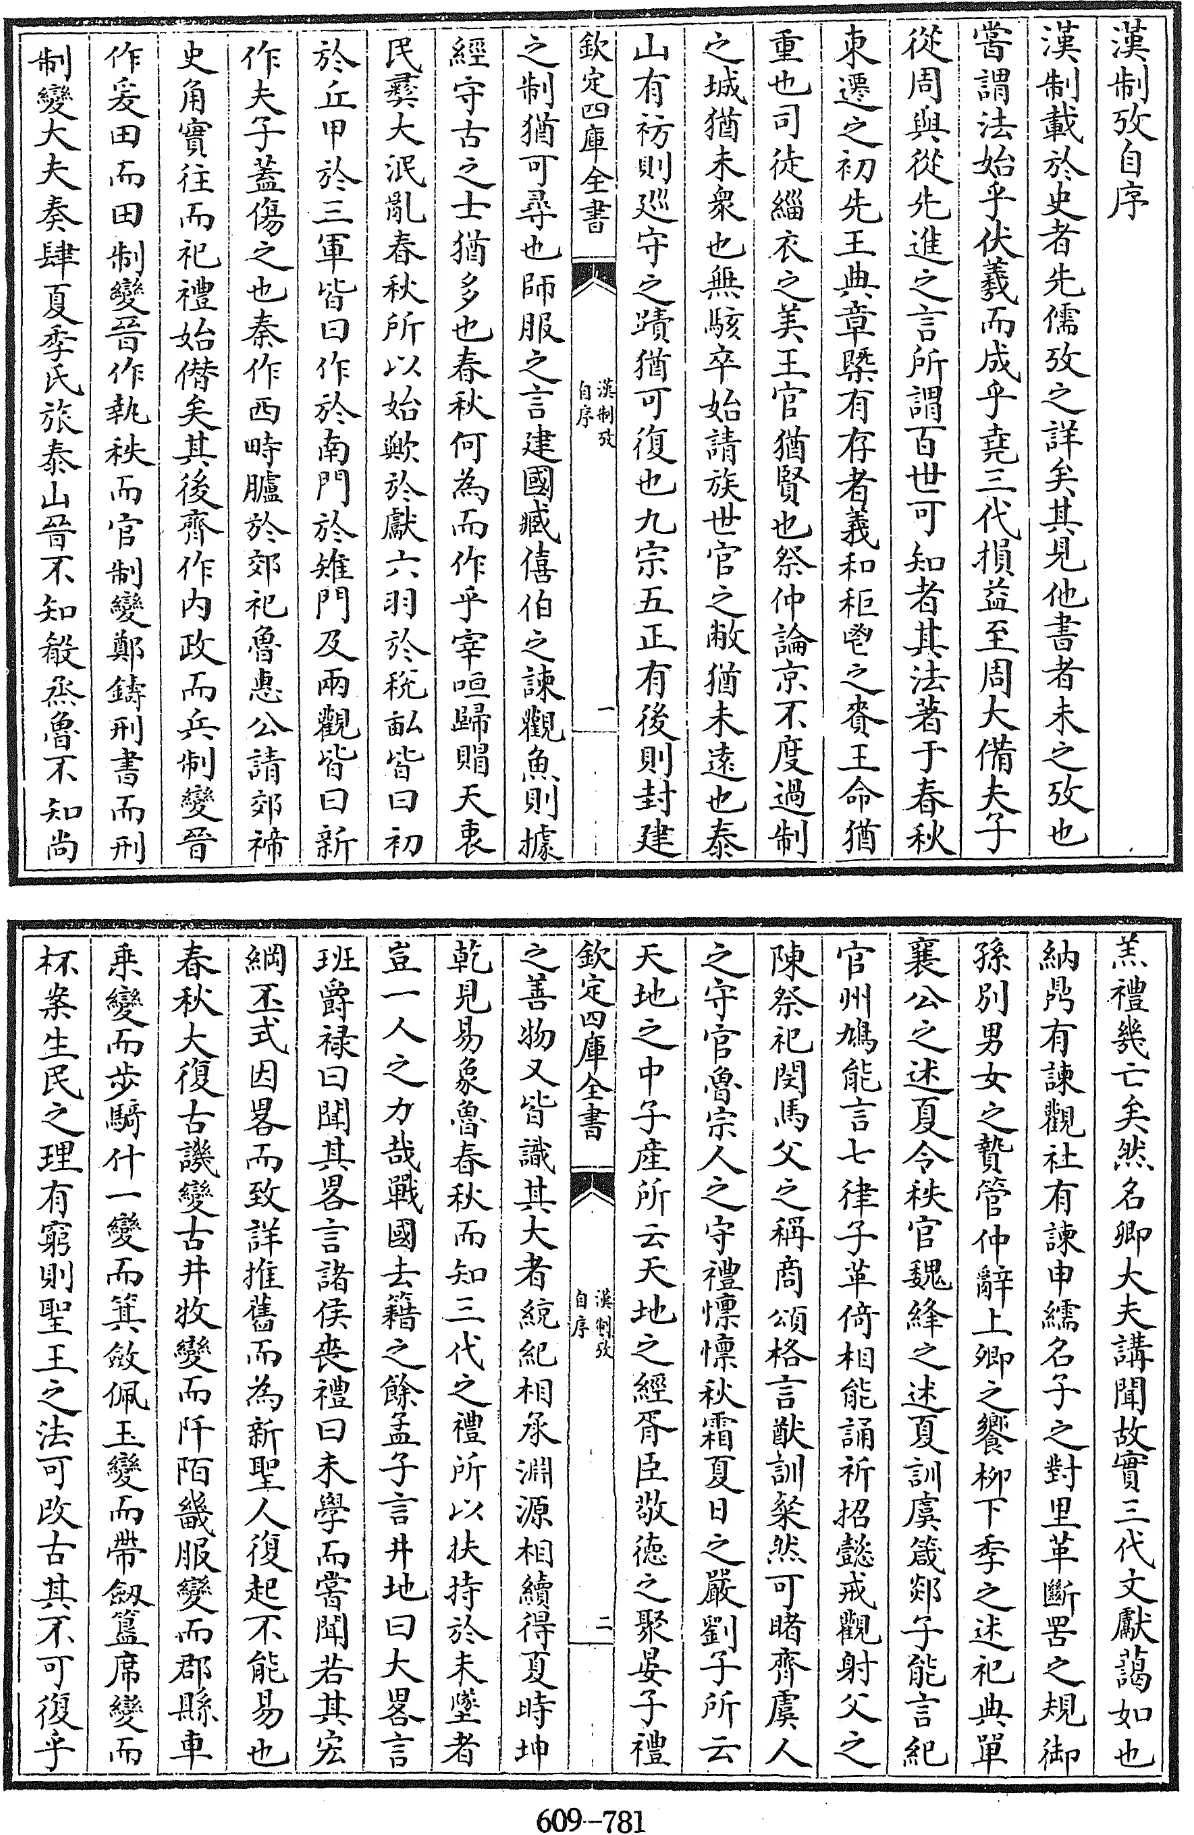 漢制攷自序
漢制載於史者先儒攷之詳矣其見他書者未之攷也
嘗謂法始乎伏羲而成乎堯三代損益至周大備夫子
從周與從先進之言所謂百世可知者其法著于春秋
東遷之初先王典章槩有存者義和秬鬯之賚王命猶
重也司徒緇衣之美王官猶賢也祭仲論京不度過制
之城猶未衆也無駭卒始請族世官之敝猶未遠也泰
山有祊則廵守之蹟猶可復也九宗五正有後則封建
欽定四庫全書
漢制攷
自序
一
之制猶可尋也師服之言建國臧僖伯之諫觀魚則據
經守古之士猶多也春秋何為而作乎宰咺歸賵天衷
民彛大泯亂春秋所以始歟於獻六羽於稅畝皆曰初
於丘甲於三軍皆曰作於南門於雉門及兩觀皆曰新
作夫子蓋傷之也秦作西畤臚於郊祀魯惠公請郊禘
史角實往而祀禮始僭矣其後齊作内政而兵制變晉
作爰田而田制變晉作執秩而官制變鄭鑄刑書而刑
制變大夫奏肆夏季氏旅泰山晉不知殽烝魯不知尚
羔禮幾亡矣然名卿大夫講聞故實三代文獻藹如也
納鼎有諫觀社有諫申繻名子之對里革斷罟之規御
孫别男女之贄管仲辭上卿之饗柳下季之述祀典單
襄公之述夏令秩官魏絳之述夏訓虞箴郯子能言紀
官州鳩能言七律子革倚相能誦祈招懿戒觀射父之
陳祭祀閔馬父之稱商頌格言猷訓粲然可睹齊虞人
之守官魯宗人之守禮懍懍秋霜夏日之嚴劉子所云
天地之中子産所云天地之經胥臣敬德之聚晏子禮
欽定四庫全書
漢制攷
自序
二
之善物又皆識其大者統紀相承淵源相續得夏時坤
乾見易象魯春秋而知三代之禮所以扶持於未墜者
豈一人之力哉戰國去籍之餘孟子言井地曰大畧言
班爵禄曰聞其畧言諸侯喪禮曰未學而嘗聞若其宏
綱丕式因畧而致詳推舊而為新聖人復起不能易也
春秋大復古譏變古井牧變而阡陌畿服變而郡縣車
乗變而步騎什一變而箕斂佩玉變而帶劔簋席變而
杯案生民之理有窮則聖王之法可改古其不可復乎
609-781